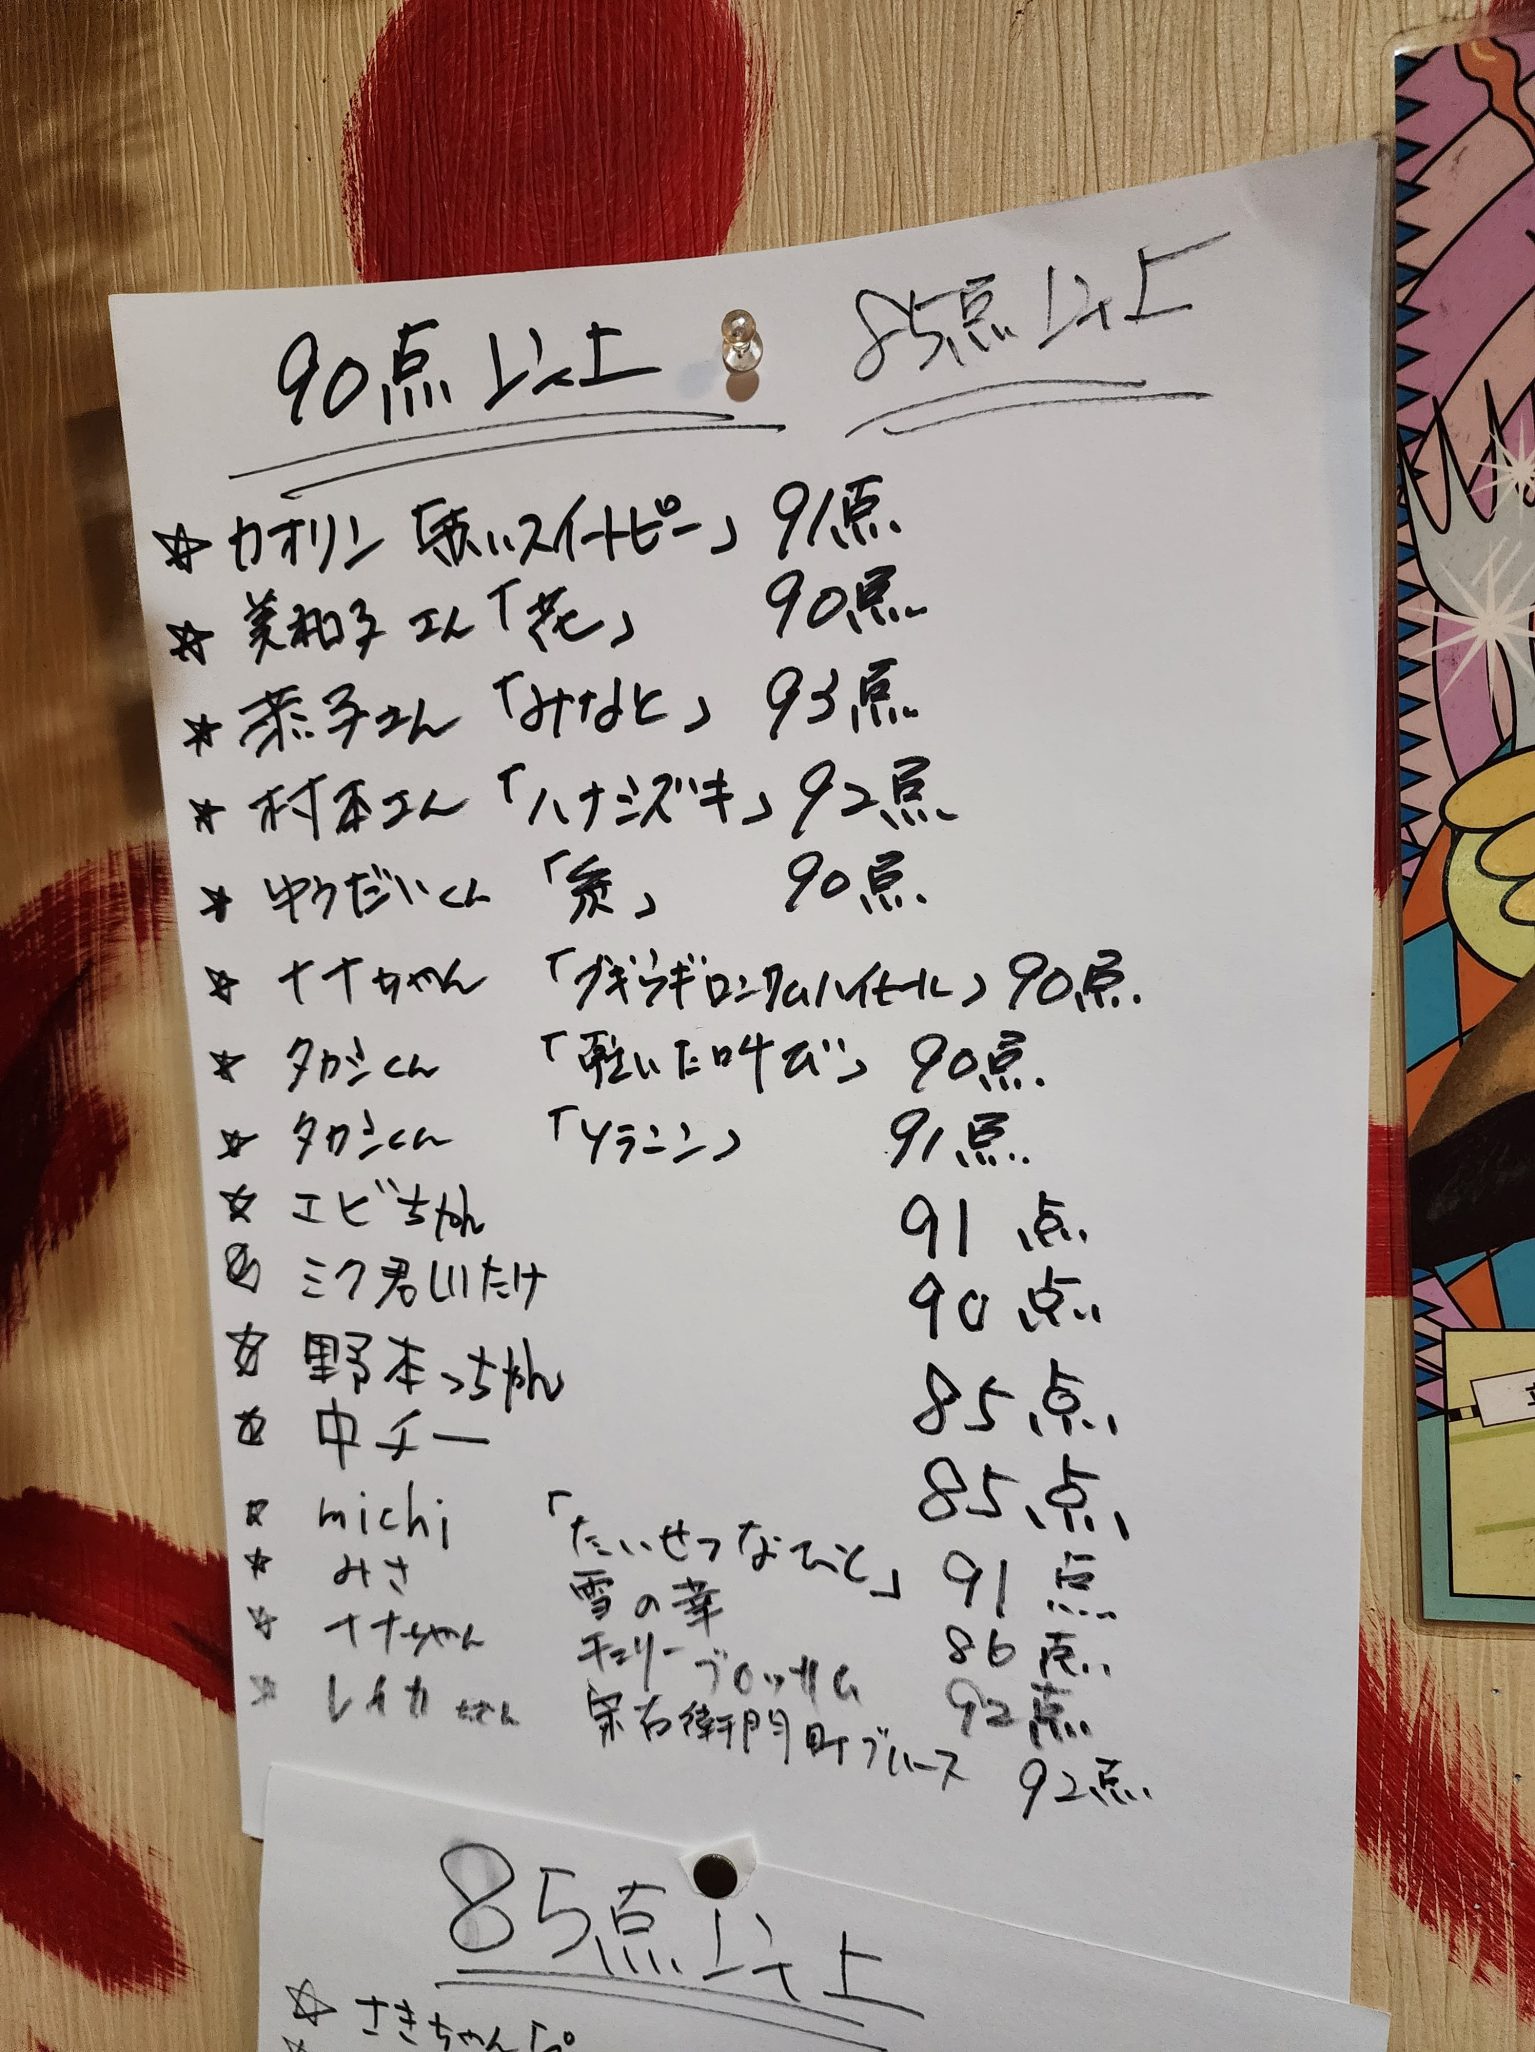 90点以上
85点以上
☆カオリン「赤いスイートピー」91点
☆美和子さん「花」90点
☆恭子さん「みなと」93点
☆村本さん「ハナミズキ」92点
☆ゆうだいくん「糸」90点
☆ナナちゃん「ブギウギロングハイヒール」90点
☆タカシくん「乾いた叫び」90点
☆タカシくん「ソラニン」91点
☆エビちゃん 91点
ミク君しいたけ 90点
☆野本っちゃん 85点
☆中チー 85点
☆michi「たいせつなひと」91点
☆みさ 雪の華 86点
☆ナナちゃん チェリーブロッサム 92点
☆レイカさん 宗右衛門町ブルース 92点
85点以上
☆さきちゃん「